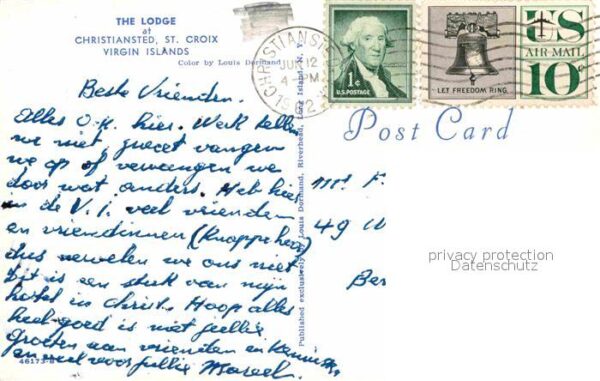 THE LODGE
at
CHRISTIANSTED, ST. CROIX
VIRGIN ISLANDS
Color by Louis Dormand
CHRISTIANSTED
JUN 12
4 - PM
1962
1¢
U.S. POSTAGE
LET FREEDOM RING
US
AIR MAIL
10¢
Post Card
Beste Vrienden.
Alles O.K. hier. Werk hebben
we niet,
we op of vervangen we
door wat anders. Heb hier
in de V.I. veel vrienden
en vriendinnen (Knappe hoor)
dus vervelen we ons niet
Dit is een stuk van mijn
hotel in Christ. Hoop alles
heel goed is met jullie
Groeten aan vrienden en kennissen
en veel voor jullie Marcel.
Mr F.
49 W
Ber
Published exclusively by Louis Dormand, Riverhead, Long Island, N. Y.
privacy protection
Datenschutz
46173